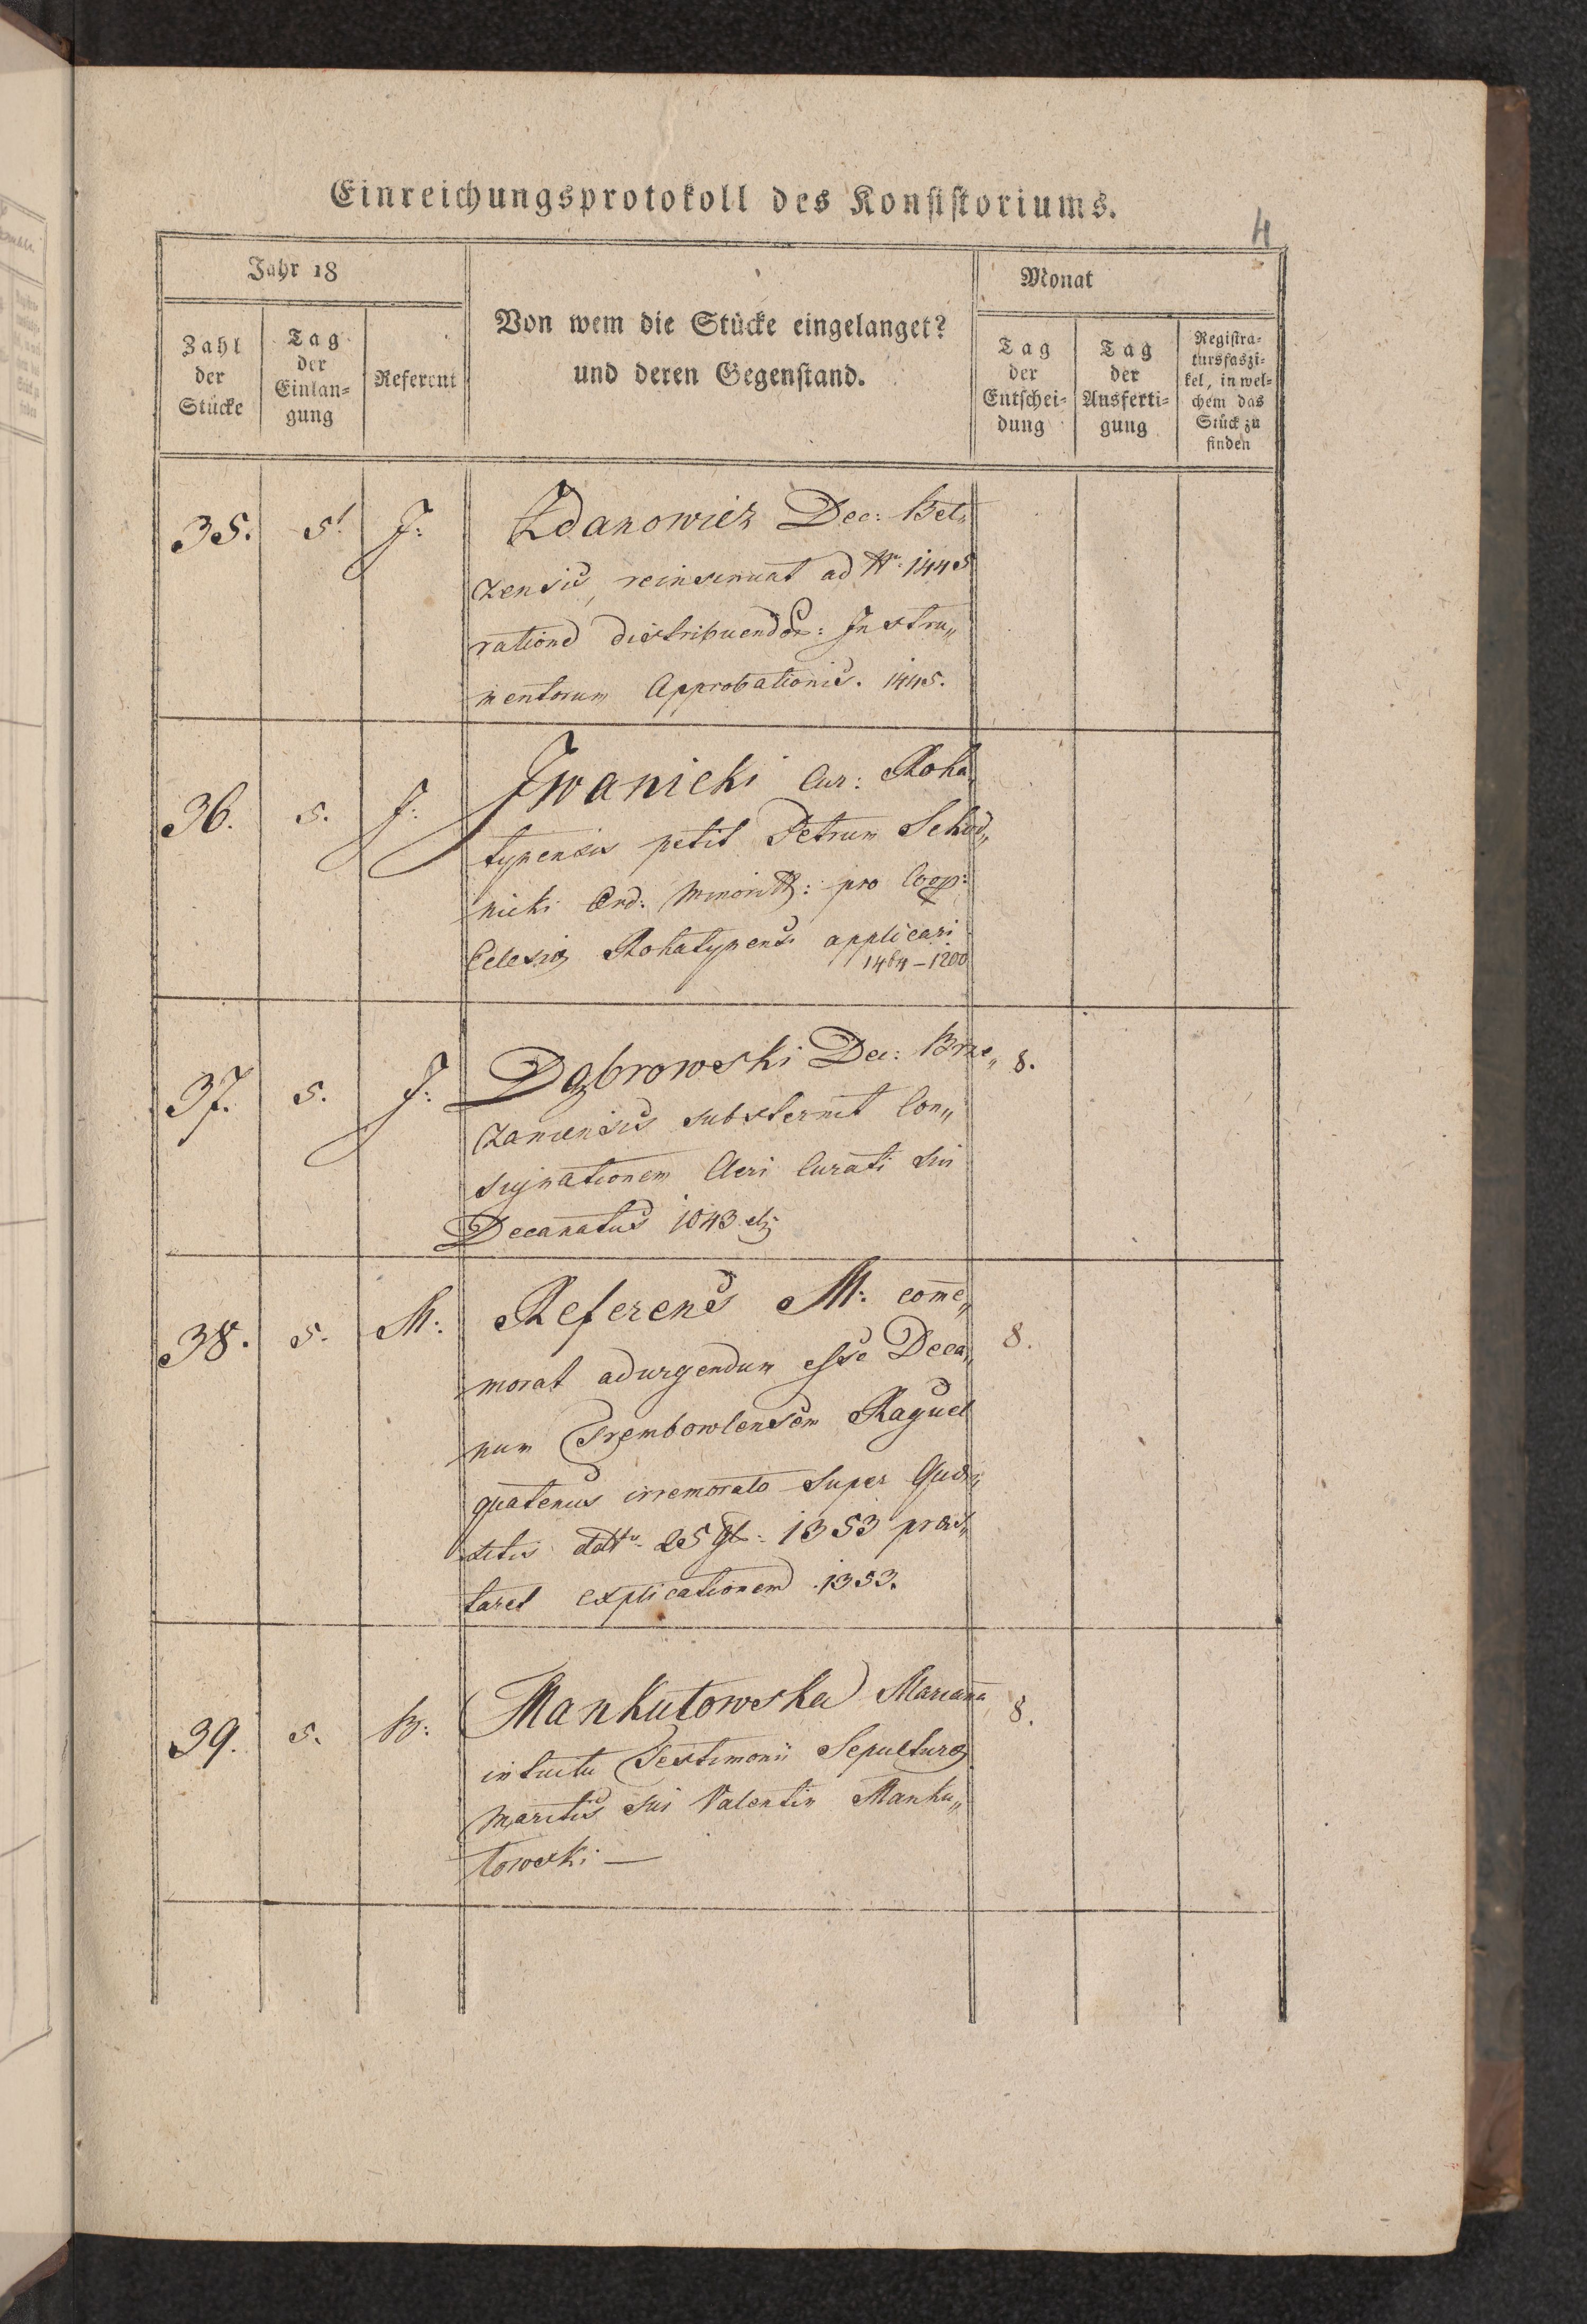 Einreichungsprotokoll des Konsistoriums.
4
Jahr 18
Monat
Zahl der Stücke
Tag der Einlan=gung
Referent
Von wem die Stücke eingelanget?
und deren Gegenstand.
Tag der Entschei=dung
Tag der Ausferti=gung
Registra=tursfaszi=kel, in wel=chem das Stück zu finden
35. 5. J: Zdanowicz Dec: Bel„
zensis, reinsinuat ad Nr. 1445
ratione distribuendor: Instru„
mentorum Approbationis. 1445.
36. 5. J: Jwanicki Cur: Roha„
tynensis petit Petrum Schod„
nicki Ord: Minoritt: pro Coop:
Eclesiæ Rohatynensi applicari
1464 – 1200
37. 5. J: Dąbrowski Dec: Brze„ 8.
zaniensis substernit Con„
signationem Cleri Curati sui
Decanatus 1043
38. 5. M: Referens M: come„ 8.
morat adurgendum esse Deca„
num Trembowlensem Raguel
quatenus irremorato super
25 1353 præs„
taret explicationem 1353.
39. 5. B: Mankutowska Marianna 8.
intuitu Testimonii Sepulturæ
maritis sui Valentin Manku„
towski —